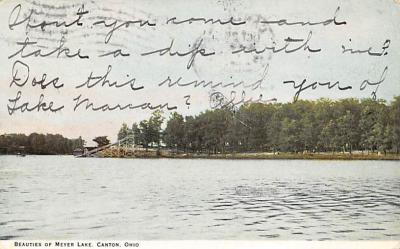 Won't you come and
take a dip with me?
Does this remind you of
Lake Marian?
BEAUTIES OF MEYER LAKE, CANTON, OHIO